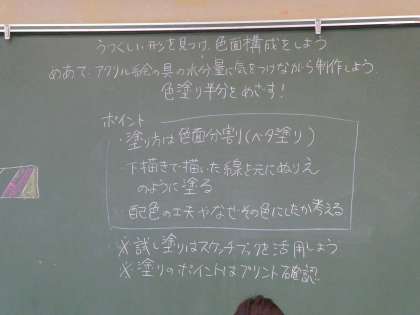 うつくしい形を見つけ、色面構成をしよう
めあて、アクリル絵の具の水分量に気をつけながら制作しよう。
色塗り半分をめざす!
ポイント
・塗り方は色面分割り(ベタ塗り)
・下描きで描いた線を元にぬりえ
のように塗る
・配色の工夫やなぜその色にしたか考える
※試し塗りはスケッチブックを活用しよう
※塗りのポイントはプリント確認